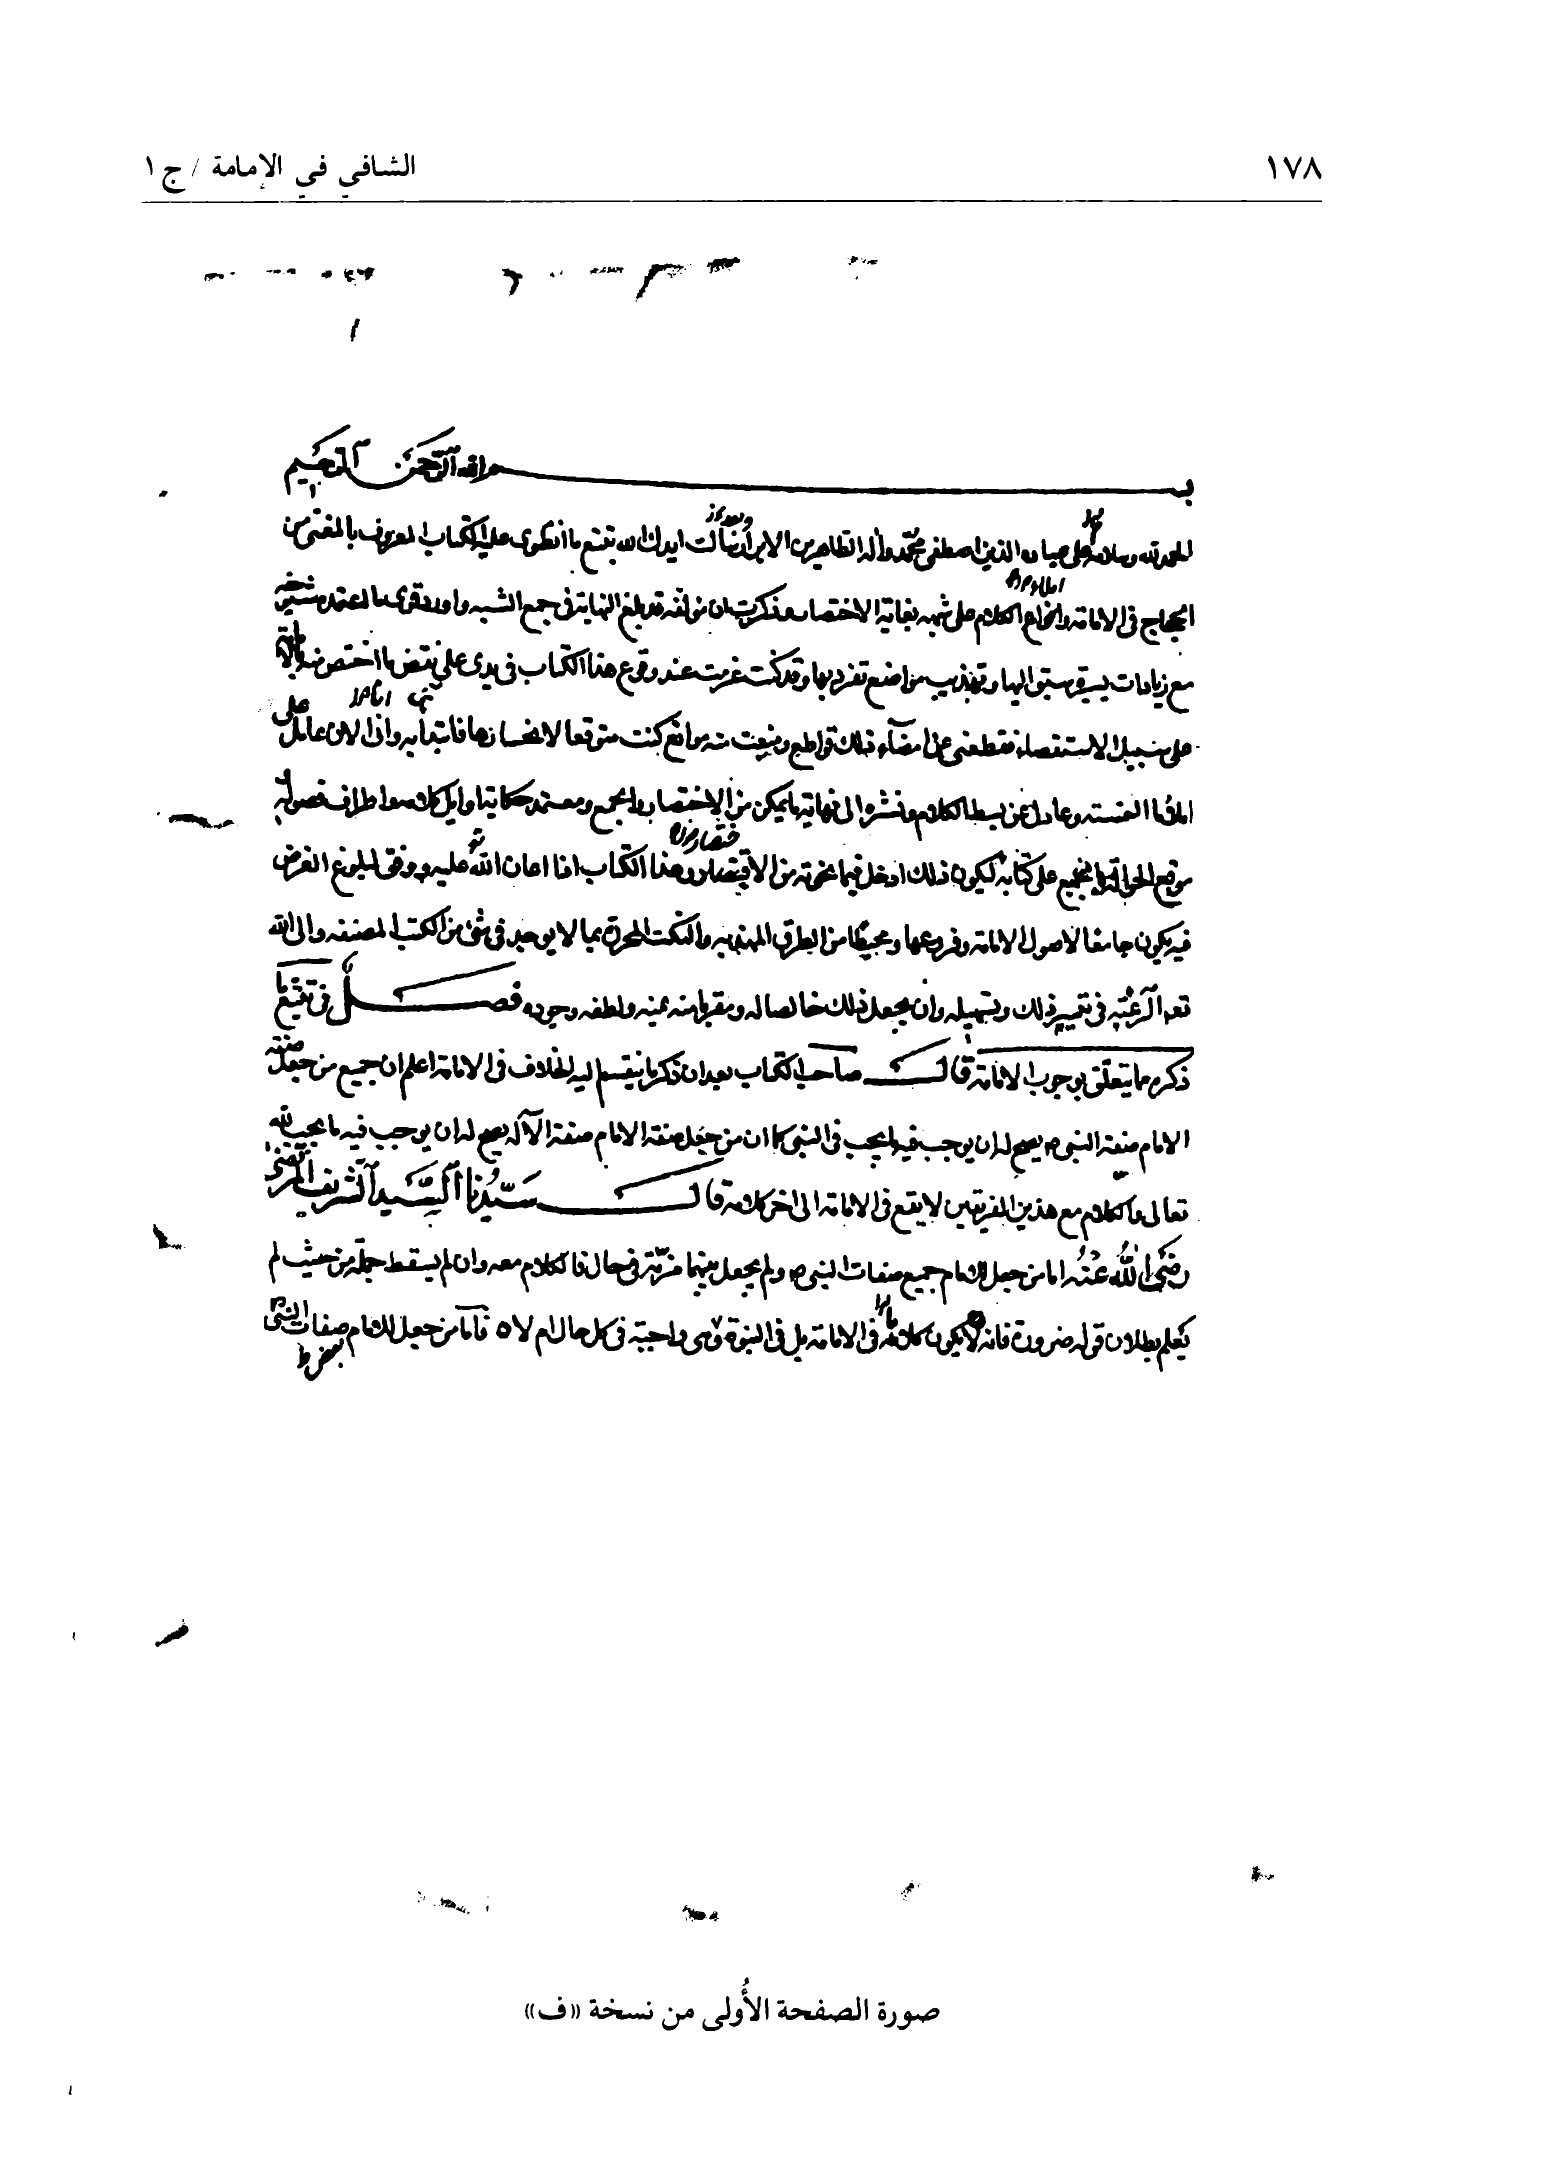 ١٧٨
الشافي في الإمامة / ج ١
بسم الله الرحمن الرحيم
الحمد لله وسلامه على عباده الذين اصطفى محمد وآله الطاهرين الابرار سالت ايدك الله تتبع ما انطوى عليه الكتاب المعروف بالمغنى من
الحجاج فى الامامة واخراج الكلام على شبهه بغاية الاختصار وذكرت ان مؤلفه قد بلغ النهاية فى جمع الشبه واورد قوى ما اعتمده شيوخه
مع زيادات يسيرة سبق اليها وتهذيب مواضع تفرد بها وقد كنت عزمت عند وقوع هذا الكتاب فى يدى على نقض ما اختص منه بالامامة
على سبيل الاستقصاء فقطعنى عن امضاء ذلك قواطع ومنعت منه موانع كنت متوقعا لانحسارها فابتدا به وانا الان عامل على
املاء ما التمسته وعادل عن بسط الكلام ونشره الى نهاية ما يمكن من الاختصار والجمع ومعتمد حكاية اوايل كلامه واطراف فصوله
موقع الحوالة بها لجميع على كتابه ليكون ذلك ادخل فيما نحوته من الاقتصار وهذا الكتاب اذا اعان الله عليه ووفق لبلوغ الغرض
فيه يكون جامعا لاصول الامامة وفروعها ومحيطا من الطرق المهذبه والنكت المحررة بما لا يوجد فى شئ من الكتب المصنفه والى الله
تعم الرغبة فى تيسير ذلك وتسهيله وان يجعل ذلك خالصا له ومقربا منه بمنه ولطفه وجوده فصل فى تتبع ما
ذكره مما يتعلق بوجوب الامامة قال صاحب الكتاب بعد ان ذكر ما ينقسم اليه الخلاف فى الامامة اعلم ان جميع من جعل صفة
الامام صفة النبي ص يصح له ان يوجب فيه ما يجب فى النبي كما ان من جعل صفة الامام صفة الآله يصح له ان يوجب فيه ما يجب لله
تعالى والكلام مع هذين الفريقين لا يقع فى الامامة الى اخر كلامه قال سيدنا السيد الشريف المرتضى
رضى الله عنه اما من جعل للامام جميع صفات النبي ص ولم يجعل بينهما مزية فى حال فالكلام معه وان لم يسقط جملة من حيث لم
يعلم بطلان قوله ضرورة فانه لا يكون كلاما فى الامامة بل فى النبوة وهى واجبة فى كل حال ام لا ه فاما من جعل للامام بعض صفات النبي
صورة الصفحة الأُولى من نسخة «ف»